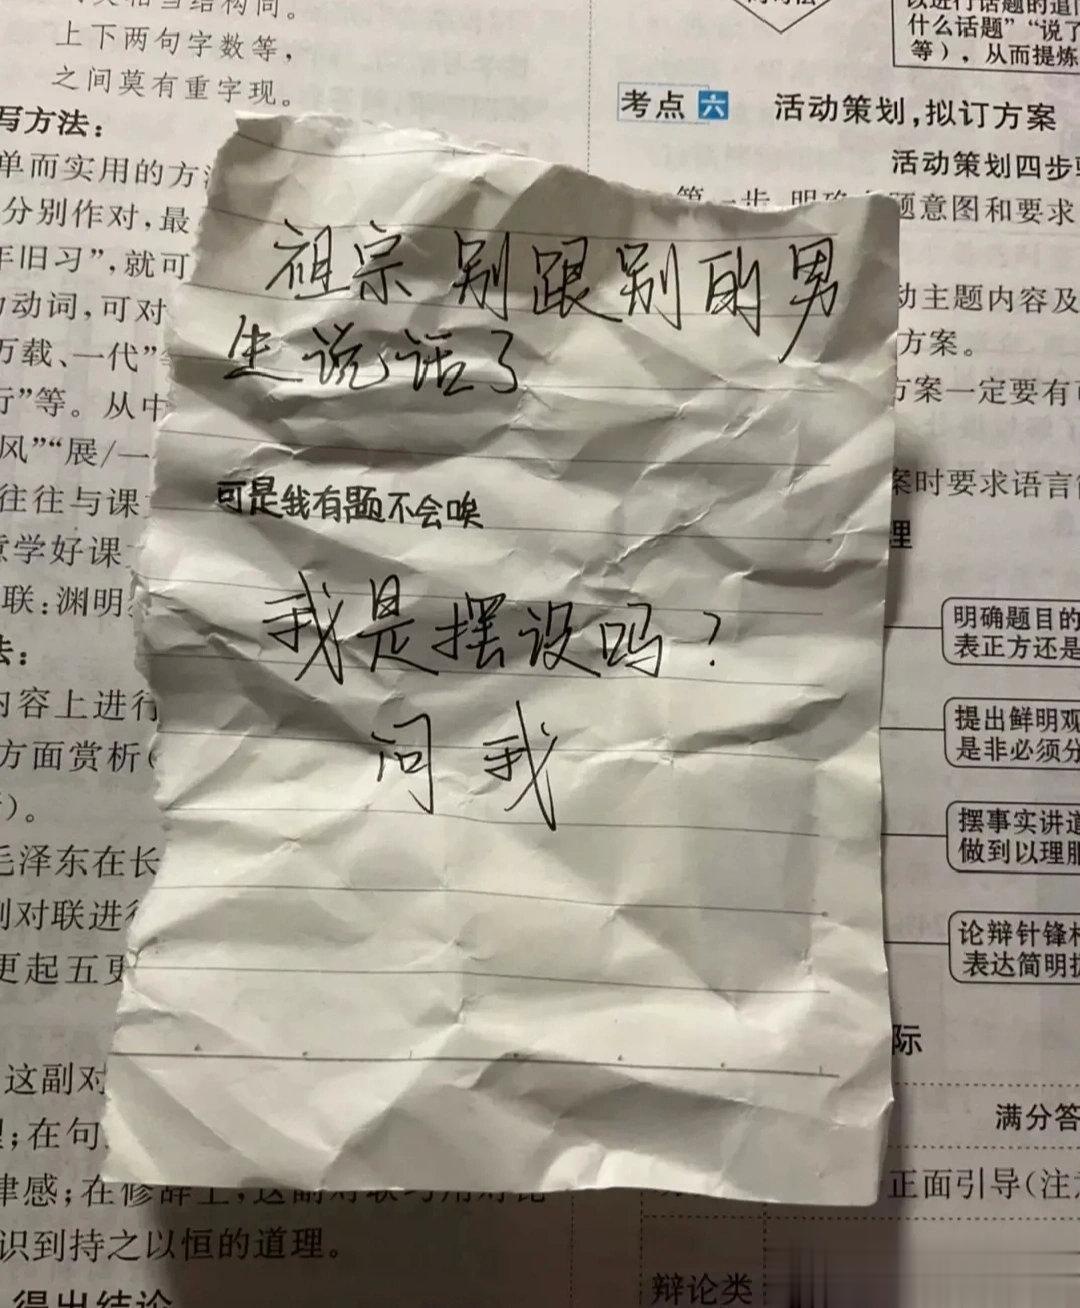 上下两句字数等，
之间莫有重字现。
写方法：
单而实用的方
分别作对，最
年旧习”，就可
动词，可对
万载、一代”
行”等。从中
风”“展/一
往往与课
意学好课
联：渊明
法：
内容上进行
方面赏析（
）。
毛泽东在长
则对联进行
更起五更
这副对
；在句
律感；在修辞上，这副对联巧用对比
识到持之以恒的道理。
得出结论
祖宗 别跟别的男
生说话了
可是我有题不会唉
我是摆设吗？
问我
什么话题”“说了
等），从而提炼
考点 六 活动策划，拟订方案
活动策划四步
第一步 明确
题意图和要求
动主题内容及
方案。
方案一定要有可
案时要求语言简
理
明确题目的
表正方还是
提出鲜明观
是非必须分
摆事实讲道
做到以理服
论辩针锋相
表达简明扼
际
满分答
正面引导（注意
辩论类